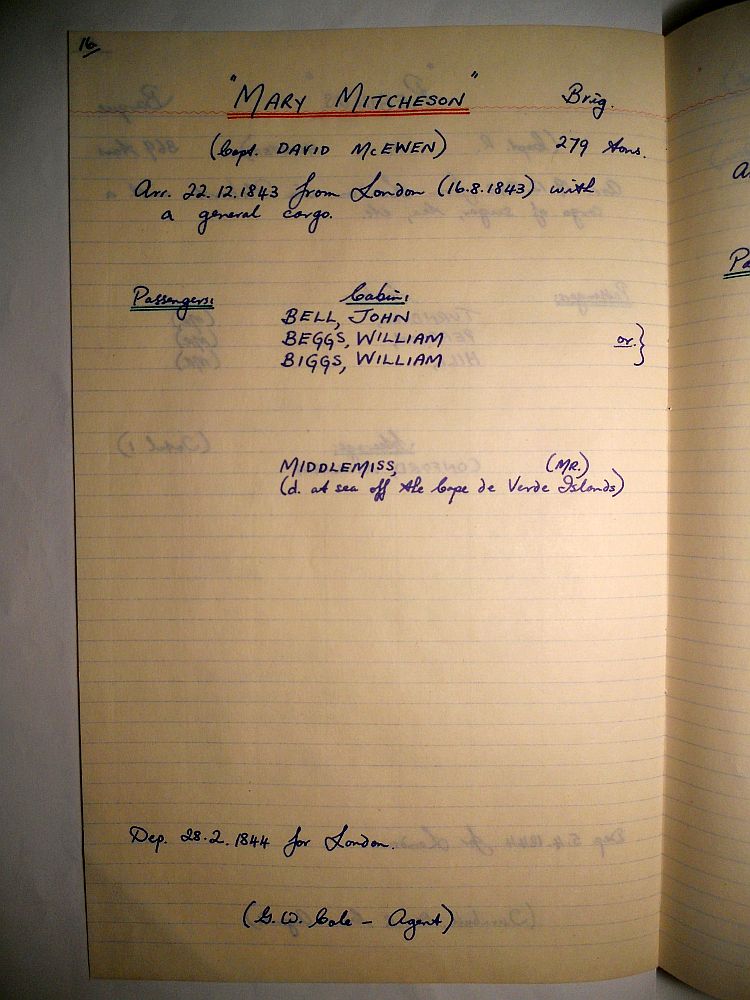 16.
"MARY MITCHESON" Brig.
(Capt. DAVID McEWEN) 279 tons.
Arr. 22.12.1843 from London (16.8.1843) with
a general cargo.
Passengers: Cabin:
BELL, JOHN
BEGGS, WILLIAM or }
BIGGS, WILLIAM
MIDDLEMISS, (MR.)
(d. at sea off the Cape de Verde Islands)
Dep. 28.2.1844 for London.
(G.W. Cole - Agent)